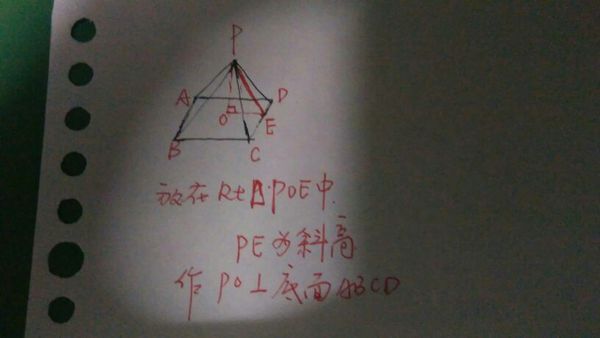 P
A
D
O
E
B
C
放在Rt△POE中.
PE为斜高
作PO⊥底面ABCD